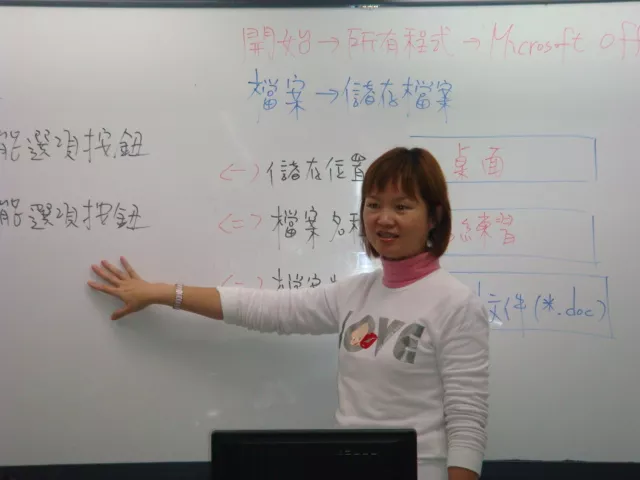 開始→所有程式→Microsoft Off
檔案→儲存檔案
能選項按鈕
(一) 儲存位置 桌面
能選項按鈕
(二) 檔案名稱 練習
文件(*.doc)
LOVE